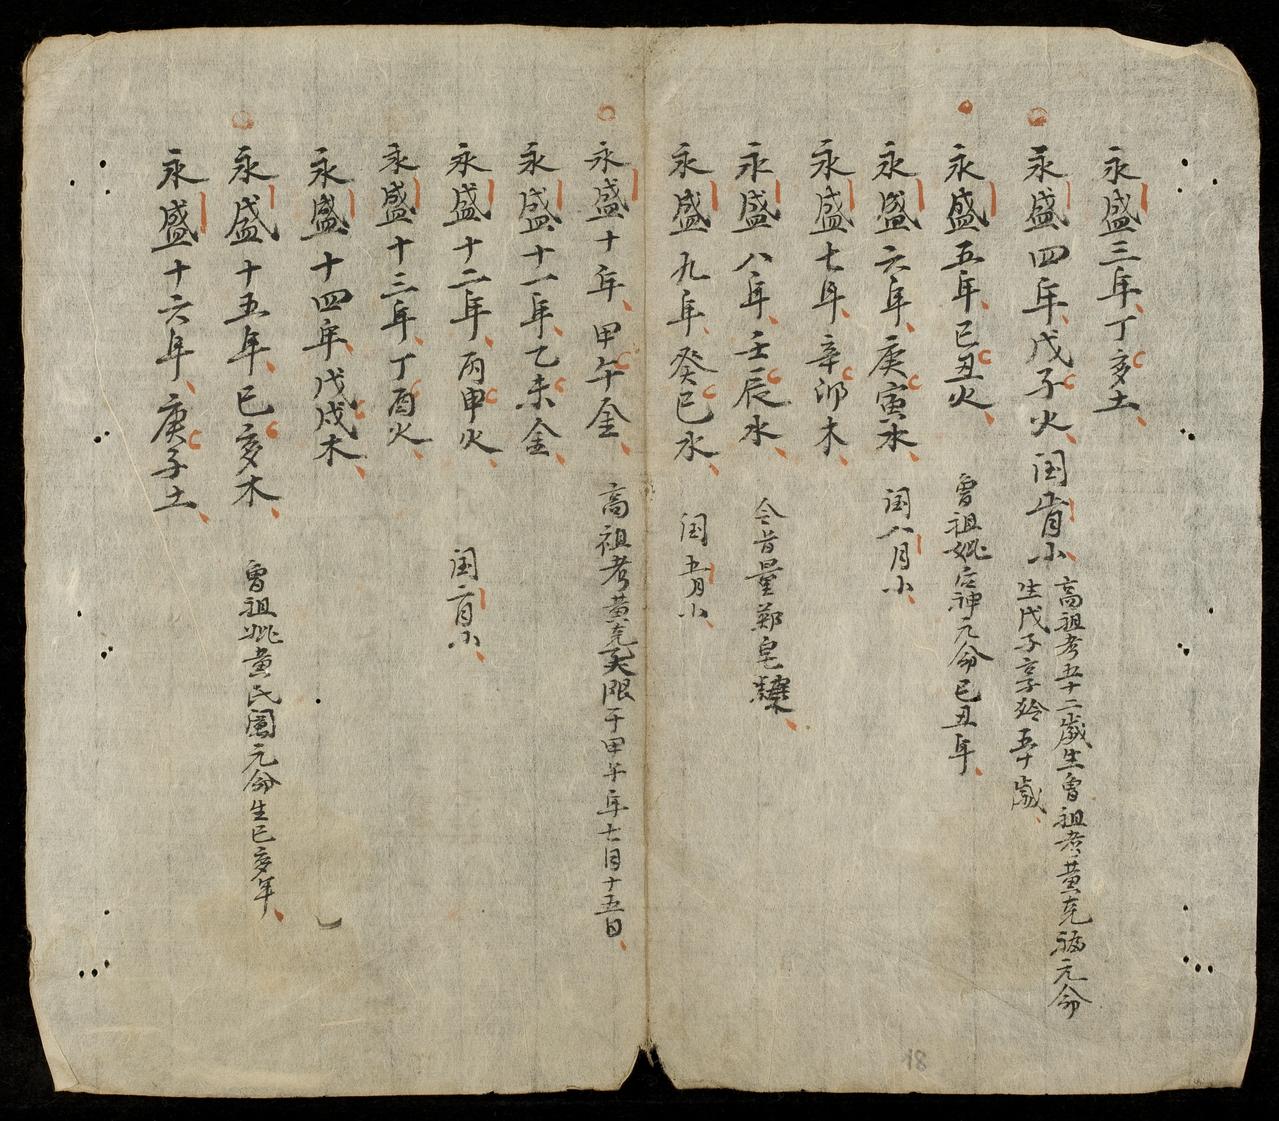 永盛三年丁亥土
永盛四年戊子火 闰肯小
高祖考五十二歲生曾祖考黄克 元命
生戊子享 五十歲
永盛五年己丑火 曾祖妣 神元命己丑年
永盛六年庚寅水 闰八月小
永盛七年辛卯木
永盛八年壬辰水 量鄭皂
永盛九年癸巳水 闰五月小
永盛十年甲午金 高祖考黄克 限于甲午年七月十五日
永盛十一年乙未金
永盛十二年丙申火 闰二月小
永盛十三年丁酉火
永盛十四年戊戌木
永盛十五年己亥木 曾祖妣黄氏 元命生己亥年
永盛十六年庚子土
18